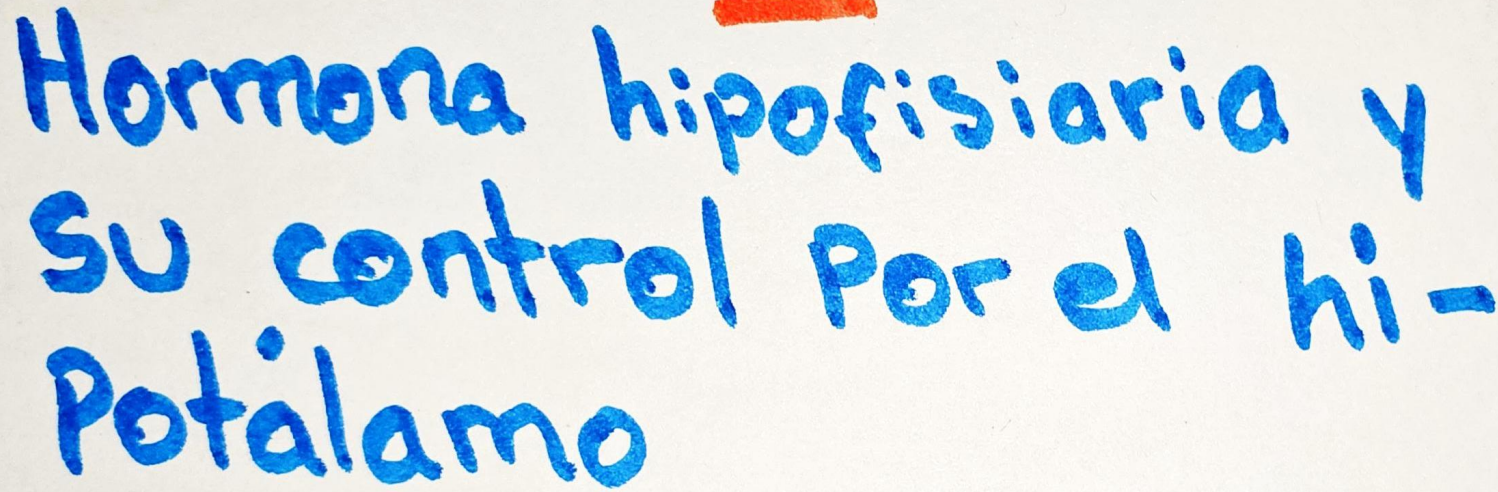 Hormona hipofisiaria y
su control Por el hi-
Potálamo